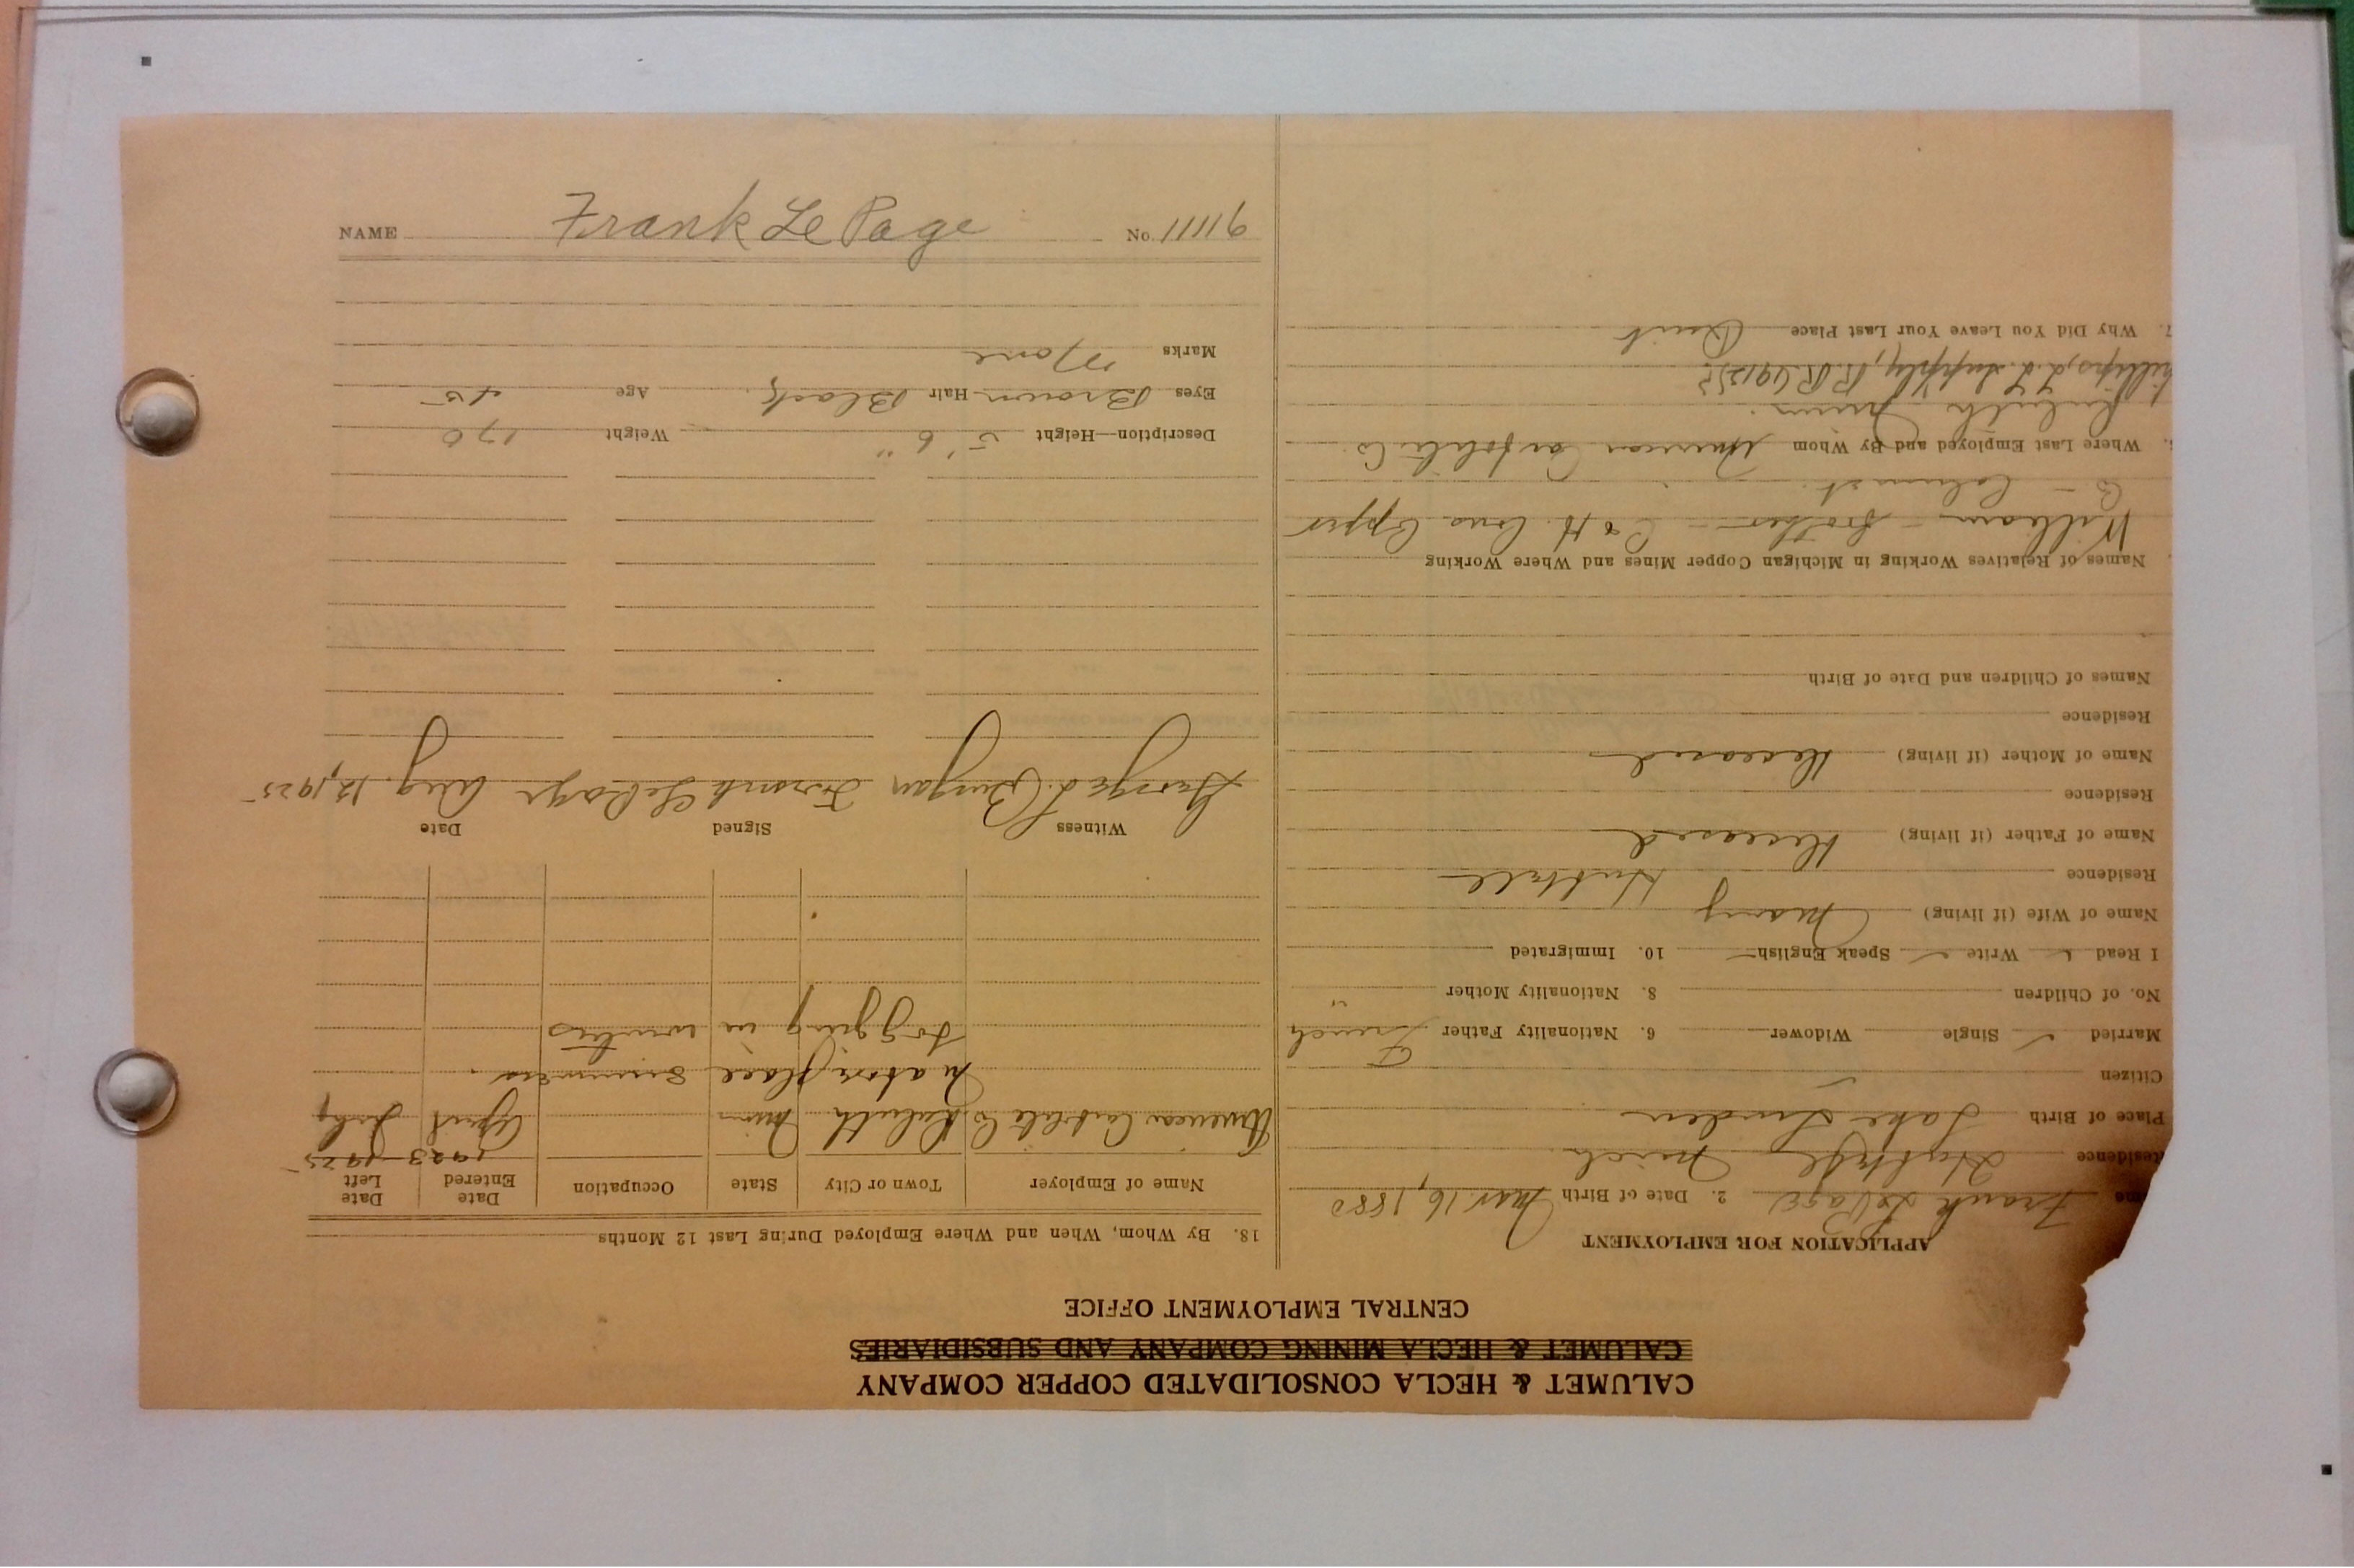 CALUMET & HECLA CONSOLIDATED COPPER COMPANY
CALUMET & HECLA MINING COMPANY AND SUBSIDIARIES
CENTRAL EMPLOYMENT OFFICE
APPLICATION FOR EMPLOYMENT
me Frank LePage 2. Date of Birth Mar. 16, 1880
Residence Hubbell Mich.
Place of Birth Lake Linden
Citizen ✓
Married ✓ Single Widower 6. Nationality Father French
No. of Children 8. Nationality Mother "
I Read ✓ Write ✓ Speak English ✓ 10. Immigrated
Name of Wife (if living) Mary
Residence Hubbell
Name of Father (if living) Deceased
Residence
Name of Mother (if living) Deceased
Residence
Names of Children and Date of Birth
Names of Relatives Working in Michigan Copper Mines and Where Working
William - brother - C & H. Cons Copper
Co - Calumet.
Where Last Employed and By Whom American Co
Duluth Minn.
L.L. Supply, R.R. (1912)?
7. Why Did You Leave Your Last Place Quit
18. By Whom, When and Where Employed During Last 12 Months
Name of Employer Town or City State Occupation Date Entered Date Left
1923 1925
American Co Duluth Minn April July
In above place summers.
Logging in winters
Witness Signed Date
George L. Frank LePage Aug. 12, 1925
Description—Height 5' 6" Weight 170
Eyes Brown Hair Black Age 45
Marks None
NAME Frank Le Page No. 11116